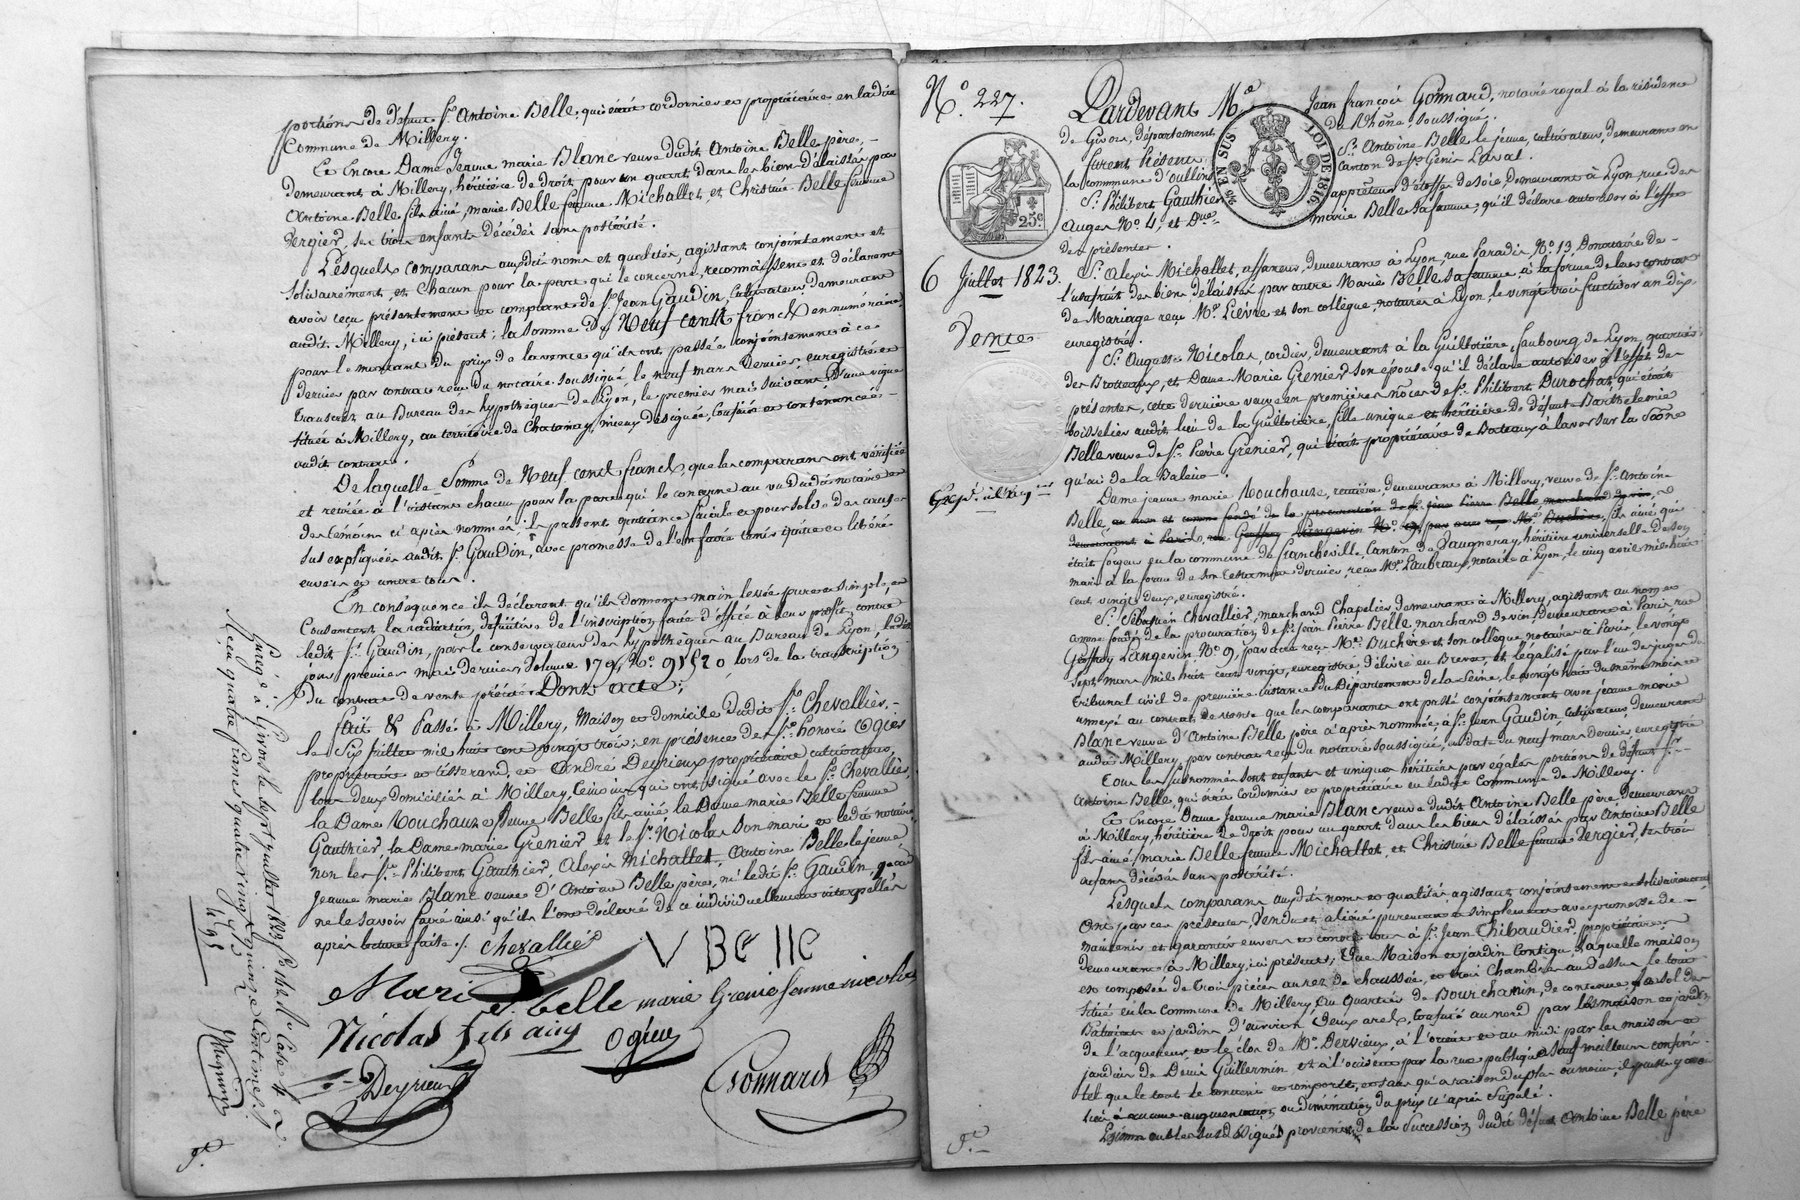 portions de défunt Sr. Antoine Belle, qui était cordonnier et propriétaire en ladite
Commune de Millery.
Et Encore Dame Jeanne marie Blanc veuve dudit Antoine Belle père,
demeurant à Millery, héritière de droit pour un quart dans les biens délaissés par
Antoine Belle fils aîné, marie Belle femme Michallet, et Christine Belle femme
Vergier, ses trois enfants décédés sans postérité.
Lesquels comparans auxdits noms et qualités, agissant conjointement et
solidairement, et chacun pour la part qui le concerne, reconnaissent et déclarent
avoir reçu présentement et comptant de Sr. Jean Gaudin, cultivateur demeurant
audit Millery, ici présent; la somme de Neuf cent francs en numéraire
pour le montant du prix de la vente qu'ils ont passée conjointement à ce
dernier par contrat reçu du notaire soussigné, le neuf mars dernier, enregistré et
transcrit au Bureau des hypothèques de Lyon, le premier mai suivant, d'une vigne
située à Millery, au territoire de Chatanay, mieux désignée, confinée et contenancée
audit contrat.
De laquelle Somme de Neuf cent francs, que les comparans ont vérifiée
et retirée à l'instant chacun pour la part qui le concerne au vu dudit notaire et
des témoins ci après nommés, ils passent quittance finale et pour solde des causes
sus expliquées audit Sr. Gaudin, avec promesse de l'en faire tenir quitte et libéré
envers et contre tous.
En conséquence ils déclarent qu'ils donnent main levée pure et simple, et
Consentent la radiation définitive de l'inscription faite d'office à leur profit contre
ledit Sr. Gaudin, par le conservateur des hypothèques au Bureau de Lyon, ledit
jour premier mai dernier, volume 179, No. 91520, lors de la transcription
du contrat de vente précité. Dont acte;
fait & Passé à Millery, Maison et domicile dudit Sr. Chevallier,
le Six juillet mil huit cent vingt trois; en présence de Sr. honoré Ogier
propriétaire et tisserand, et André Deyrieux propriétaire cultivateur,
tous deux domiciliés à Millery, témoins qui ont signé avec le Sr. Chevallier,
la Dame Touchauze, Veuve Belle fils aîné, la Dame marie Belle femme
Gauthier, la Dame marie Grenier et le Sr. Nicolas Son mari et ledit notaire,
non les Sr. Philibert Gauthier, Alexis Michallet, Antoine Belle le jeune
Jeanne marie Blanc veuve d'Antoine Belle père, ni ledit Sr. Gaudin, pour
ne le savoir faire ainsi qu'ils l'ont déclaré de ce individuellement interpellés
après lecture faite. Chevallier
V Belle
Mari
et belle marie Grenie femme nicolas
Nicolas fils ainé Ogier
Deyrieux Gonnard
Enregé. à Givors le sept juillet 1823, fo. 142 Ro. Case 4 &a.
Reçu quatre francs quatre vingt quinze Centimes
4.95
No. 227.
6 Juillet 1823.
Vente
Pardevant Me. Jean françois Gonnard, notaire royal à la résidence
de Givors, département du Rhône, soussigné.
furent Présens Sr. Antoine Belle le jeune, cultivateur, demeurant en
la commune d'oullins canton de St. Genis Laval.
Sr. Philibert Gauthier appréteur d'étoffes de soie, demeurant à Lyon, rue des
Auges No. 4, et Dme. marie Belle sa femme, qu'il déclare autoriser à l'effet
des présentes.
EN SUS
LOI DE 1816.
25c.
Sr. Alexis Michallet, affaneur, demeurant à Lyon, rue Paradis No. 13, Donataire de
l'usufruit des biens délaissés par autre Marie Belle sa femme, à la forme de leur contrat
de Mariage reçu Me. Lièvre et son collègue, notaires à Lyon, le vingt trois fructidor an dix
enregistré.
Sr. Auguste Nicolas, cordier, demeurant à la Guillotière, faubourg de Lyon, quartier
des Brotteaux, et Dame Marie Grenier son épouse qu'il déclare autoriser à l'effet des
présentes, cette dernière veuve en premières nôces de Sr. Philibert Durochat, qui était
boisselier audit lieu de la Guillotière, fille unique et héritière de défunte Barthelemie
Belle veuve de Sr. Pierre Grenier, qui était propriétaire de Bateaux à laver sur la Saône
quai de la Baleine.
Dame jeanne marie Touchauze, rentière, demeurant à Millery, veuve de Sr. Antoine
Belle, fils aîné qui
était foyeur en la commune de francheville, Canton de Vaugneray, héritière universelle de son
mari à la forme de son testament dernier, reçu Me. Laubreaux, notaire à Lyon, le cinq avril mil huit
cent vingt deux, enregistré.
Sr. Sébastien Chevallier, marchand Chapelier demeurant à Millery, agissant au nom et
comme fondé de la procuration de Sr. jean Pierre Belle marchand de vin, demeurant à Paris, rue
Geoffroy Langevin, No. 9, par acte reçu Me. Buchère et son collègue notaires à Paris le vingt
sept mars mil huit cent vingt, enregistré, délivré en Brevet, et légalisé par l'un des juges du
Tribunal civil de première instance du Département de la Seine, le vingt huit du même mois, et
annexé au contrat de vente que les comparants ont passé conjointement avec jeanne marie
Blanc veuve d'Antoine Belle père ci après nommée, à Sr. Jean Gaudin, cultivateur, demeurant
audit Millery, par contrat reçu du notaire soussigné, en date du neuf mars dernier, enregistré
Tous les susnommés sont enfants et uniques héritiers par égales portions de défunt Sr.
Antoine Belle, qui était cordonnier et propriétaire en ladite Commune de Millery.
Et Encore Dame Jeanne marie Blanc veuve dudit Antoine Belle père, demeurant
à Millery, héritière de droit pour un quart dans les biens délaissés par Antoine Belle
fils aîné, marie Belle femme Michallet, et Christine Belle femme Vergier, ses trois
enfans décédés sans postérité.
Lesquels comparans auxdits noms et qualités, agissant conjointement et solidairement,
Ont par ces présentes, Vendu et aliéné purement et simplement avec promesse de
maintenir et garantir envers et contre tous à Sr. Jean Thibaudier, propriétaire,
demeurant à Millery, ici présent; Une Maison et jardin contigu, laquelle maison
est composée de trois pièces au rez de chaussée, et trois Chambres au dessus, le tout
situé en la Commune de Millery, au quartier de Bourchanin, de contenue en sol de
Bâtiment et jardin d'environ deux ares, confiné au nord par les maison et jardin
de l'acquéreur, et le clos de Mr. Dervieux, à l'orient et au midi par les maison et
jardin de Denis Guillermin, et à l'occident par la rue publique, sauf meilleurs confins.
tel que le tout se contient et comporte, et sans qu'à raison du plus ou moins, il puisse y avoir
lieu à aucune augmentation ou diminution du prix ci après stipulé.
Les immeubles susdésignés proviennent de la Succession dudit défunt Antoine Belle père